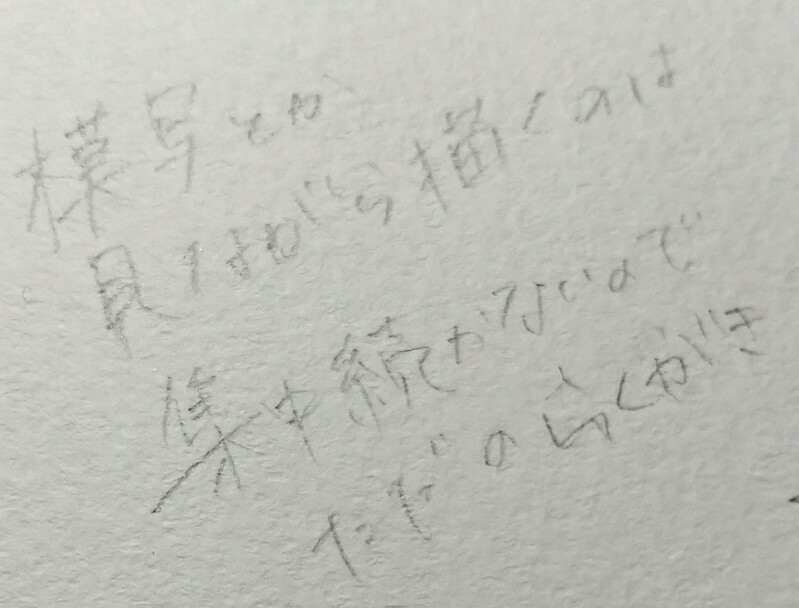 模写とか
見ながら描くのは
集中続かないので
ただのらくがき